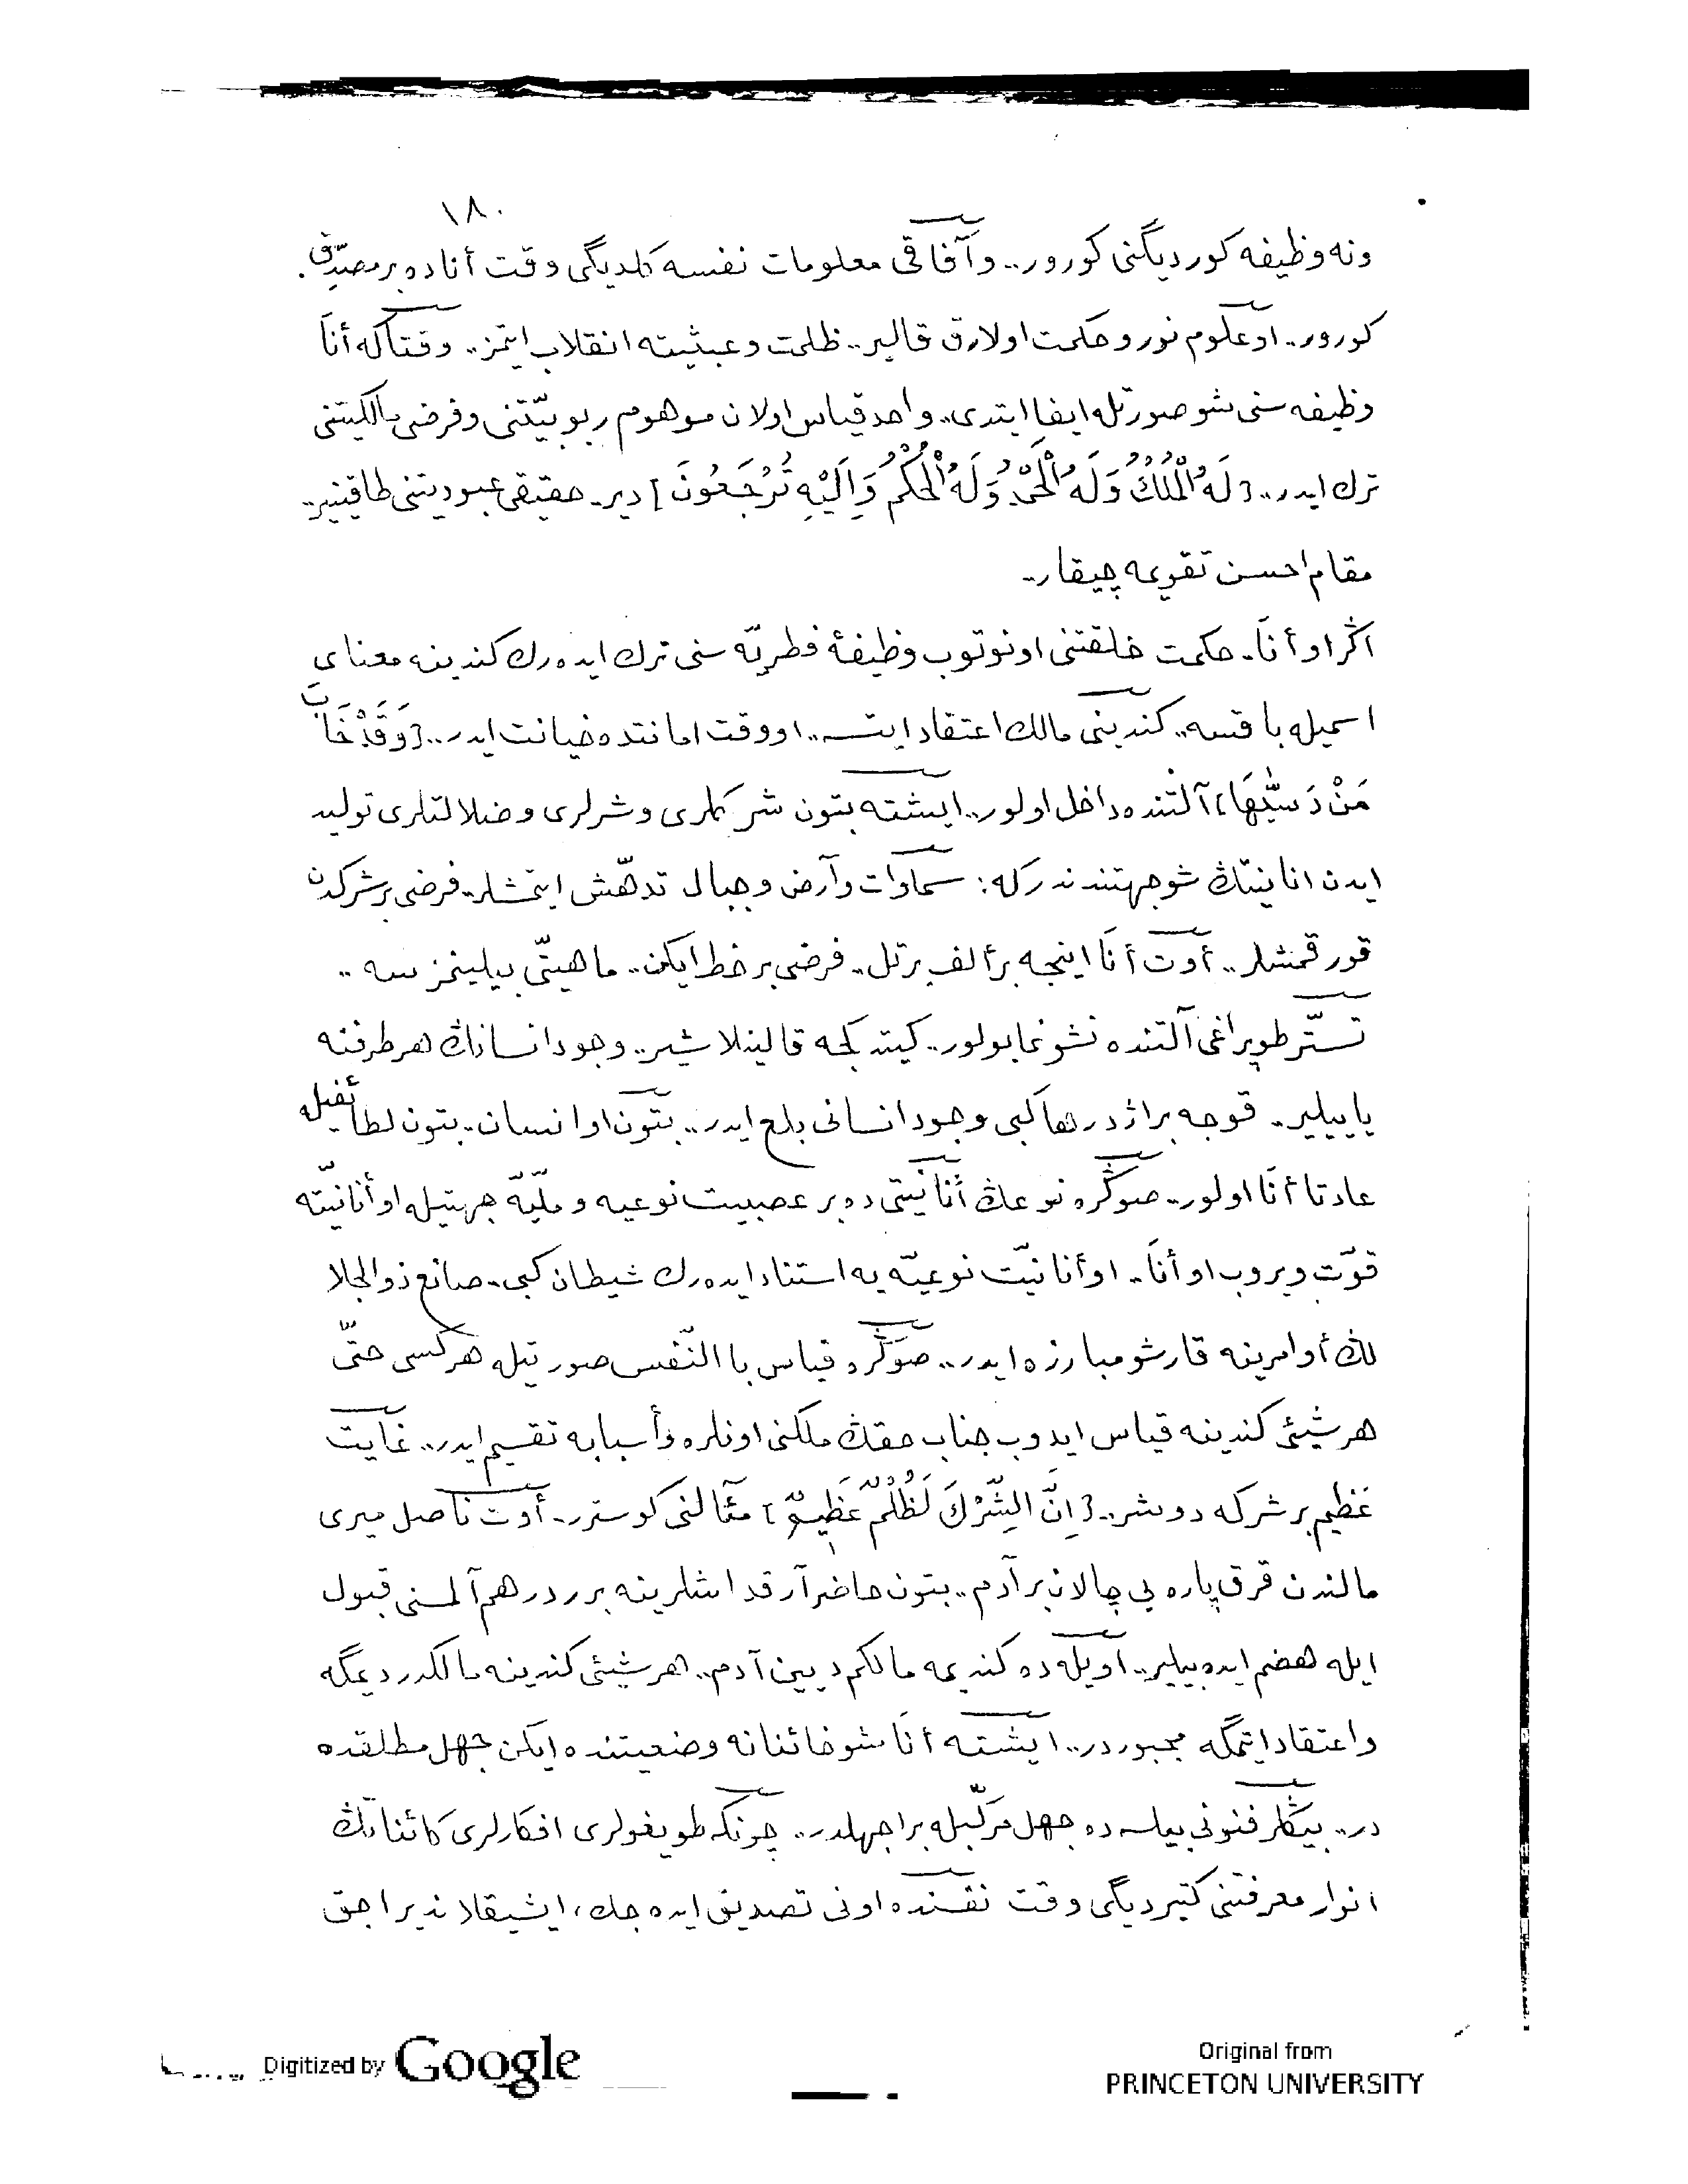 ١٨٠
ونه وظيفه كورديگنى كورور.. وآفاقى معلومات نفسه كلديگى وقت أناده بر مصدّق
كورور.. او علوم نور و حكمت اولارق قالير.. ظلمت و عبثيته انقلاب ايتمز.. وقتاكه أنا
وظيفه سنى شو صورتله ايفا ايتدى.. واحد قياس اولان موهوم ربوبيّتنى و فرضى مالكيتنى
ترك ايدر.. [لَهُ الْمُلْكُ وَلَهُ الْحَمْدُ وَلَهُ الْحُكْمُ وَاِلَيْهِ تُرْجَعُونَ] دير. حقيقى عبوديتنى طاقينير..
مقام احسن تقويمه چيقار..
اگر او أنا. حكمت خلقتنى اونوتوب وظيفۀ فطريّه سنى ترك ايده رك كندينه معناى
اسميله باقسه.. كندينى مالك اعتقاد ايتسه.. او وقت امانتده خيانت ايدر.. [وَقَدْ خَابَ
مَنْ دَسّٰيهَا] آلتنده داخل اولور.. ايشته بتون شركلرى و شرلرى و ضلالتلرى توليد
ايدن انانيتڭ شو جهتندندركه: سماوات و آرض و جبال تدهّش ايتمشلر. فرضى بر شركدن
قورقمشلر.. أوت أنا اينجه بر ألف بر تل.. فرضى بر خط ايكن.. ماهيتّى بيلينمز سه ..
تستّر طوپراغى آلتنده نشو نما بولور.. كيتدكجه قالينلاشير.. وجود انسانڭ هر طرفنه
ياييلير. قوجه بر اژدرها كبى وجود انسانى بلع ايدر.. بتون او انسان. بتون لطائفيله
عادتا أنا اولور.. صوڭره نوعڭ أنانيتى ده بر عصبيت نوعيه و ملّيّه جهتيله او أنانيّته
قوّت ويروب او أنا. او أنانيّت نوعيّه يه استناد ايده رك شيطان كبى. صانع ذوالجلا
لڭ أوامرينه قارشو مبارزه ايدر.. صوڭره قياس با النّفس صورتيله هركسى حتّى
هر شيئى كندينه قياس ايدوب جناب حقڭ ملكنى اونلره و أسبابه تقسيم ايدر.. غايت
عظيم بر شركه دوشر.. [اِنَّ الشِّرْكَ لَظُلْمٌ عَظِيمٌ] مآلنى كوسترر. أوت ناصل ميرى
مالندن قرق پاره يى چالان بر آدم.. بتون حاضر آرقداشلرينه برر درهم آلمسنى قبول
ايله هضم ايده بيلير.. اويله ده كنديمه مالكم ديين آدم.. هر شيئى كندينه مالكدر ديمگه
و اعتقاد ايتمگه مجبوردر.. ايشته أنا شو خائنانه وضعيتنده ايكن جهل مطلقده
در.. بيڭلر فنونى بيلسه ده جهل مركّبله بر اجهلدر.. چونكه طويغولرى افكارلرى كائناتڭ
انوار معرفتنى كتيرديگى وقت نفسنده اونى تصديق ايده جك، ايشيقلانديراجق
Digitized by Google
Original from
PRINCETON UNIVERSITY